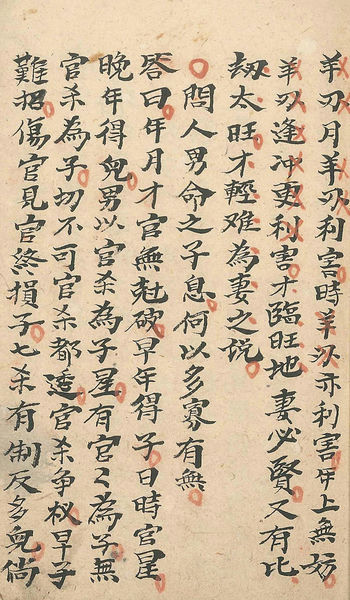 羊刃月羊刃利害時羊刃亦利害年上無妨
羊刃逢冲更利害才臨旺地妻必賢又有比
劫太旺才輕难為妻之悦
〇問人男命之子息何以多寡有無
答曰年月才官無尅破早年得子日時官星
晚年得兒男以官杀為子星有官〻為子無
官杀為子切不可官杀都透官杀争权早子
難招傷官見官終損子七杀有制反多兒倘